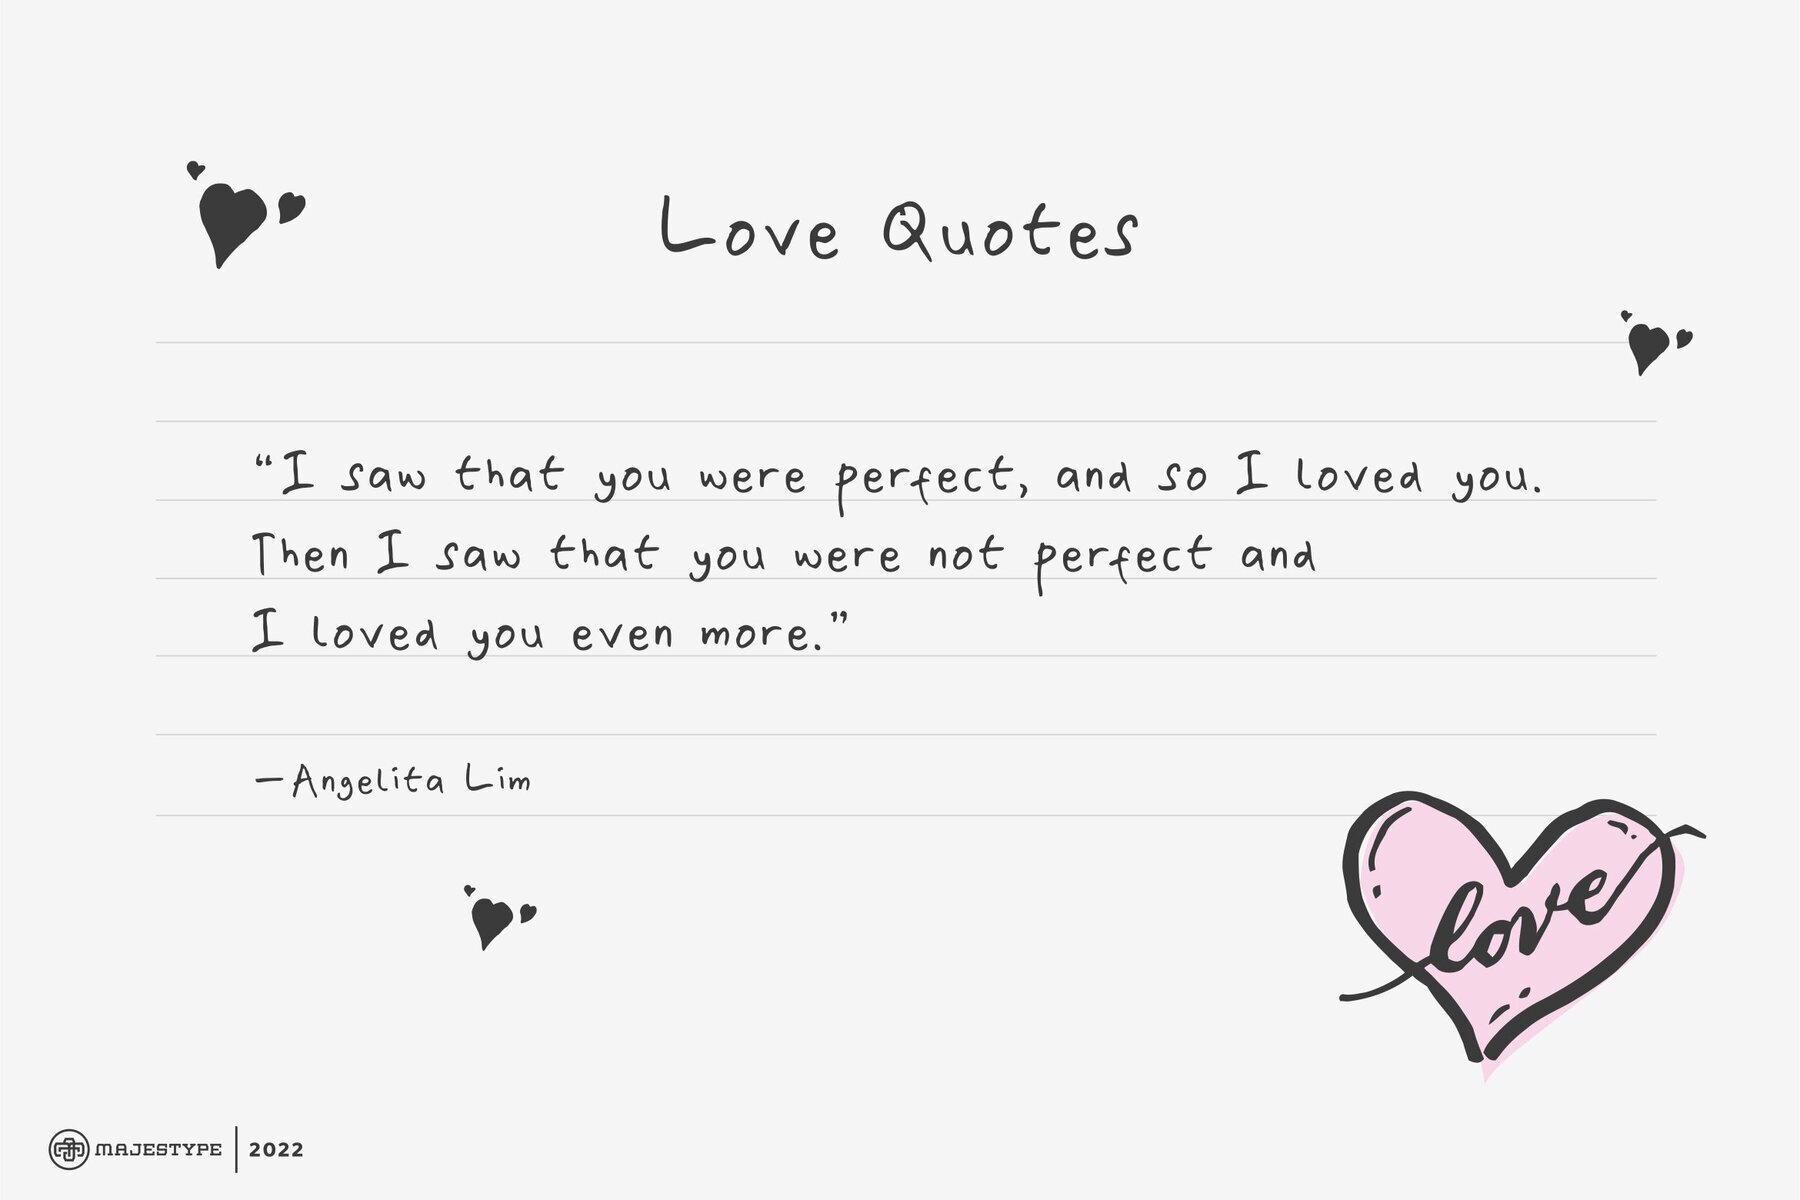 Love Quotes
“I saw that you were perfect, and so I loved you.
Then I saw that you were not perfect and
I loved you even more.”
—Angelita Lim
love
MAJESTYPE | 2022